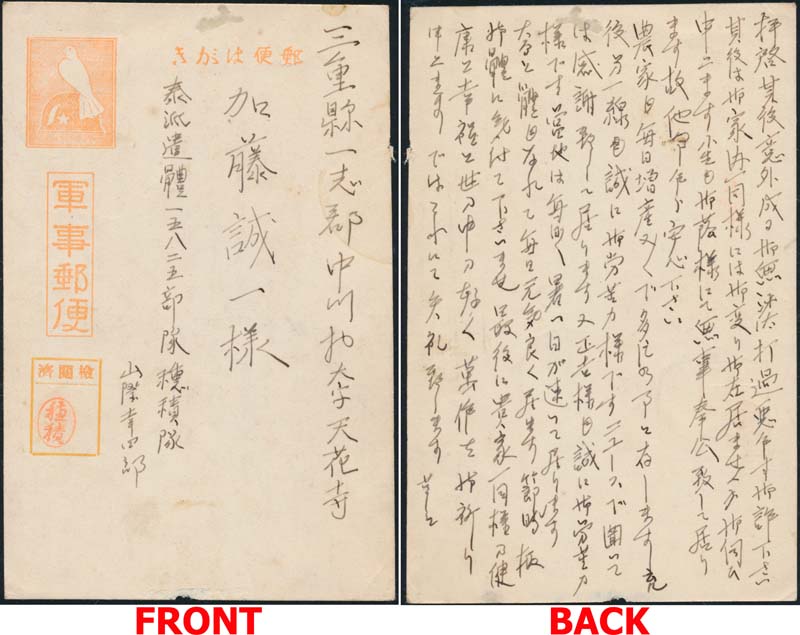 郵便はがき
三重縣一志郡中川村大字天花寺
加藤誠一様
泰派遣體一五八二五部隊穂積隊
山際幸四郎
軍事郵便
檢閲済
穂積
FRONT
拝啓其後意外成る御無沙汰打過 御許下さい
其後は御家内一同様には御変り御在居ませんか御伺ひ
申上ます小生も御蔭様にて無事奉公致して居り
ます故他事乍ら安心下さい
農家も毎日増産々々で多忙の事と存じます
後方一線も誠に御苦労様ですニュースで聞いて
は感謝致して居ります又 様も誠に御苦労
様です當地は毎日々暑い日が続いて居ります
大分と體もなれて毎日元気良く居ます節時
御體に気付けて下さいませ最後に貴家一同様の健
康と幸福と世の中の 作を御祈り
申上ます ではこれにて失礼致します 草々
BACK